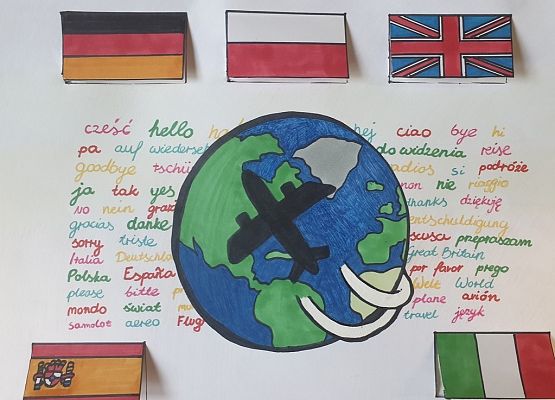 cześć hello hej ciao bye hi
pa auf do widzenia reise
goodbye si podróże
ja tak yes non nie
no nein thanks dziękuję
gracias danke entschuldigung
sorry triste scusa przepraszam
Italia Great Britain
Polska España por favor prego
please bitte Welt World
mondo świat plane avión
samolot aereo travel język